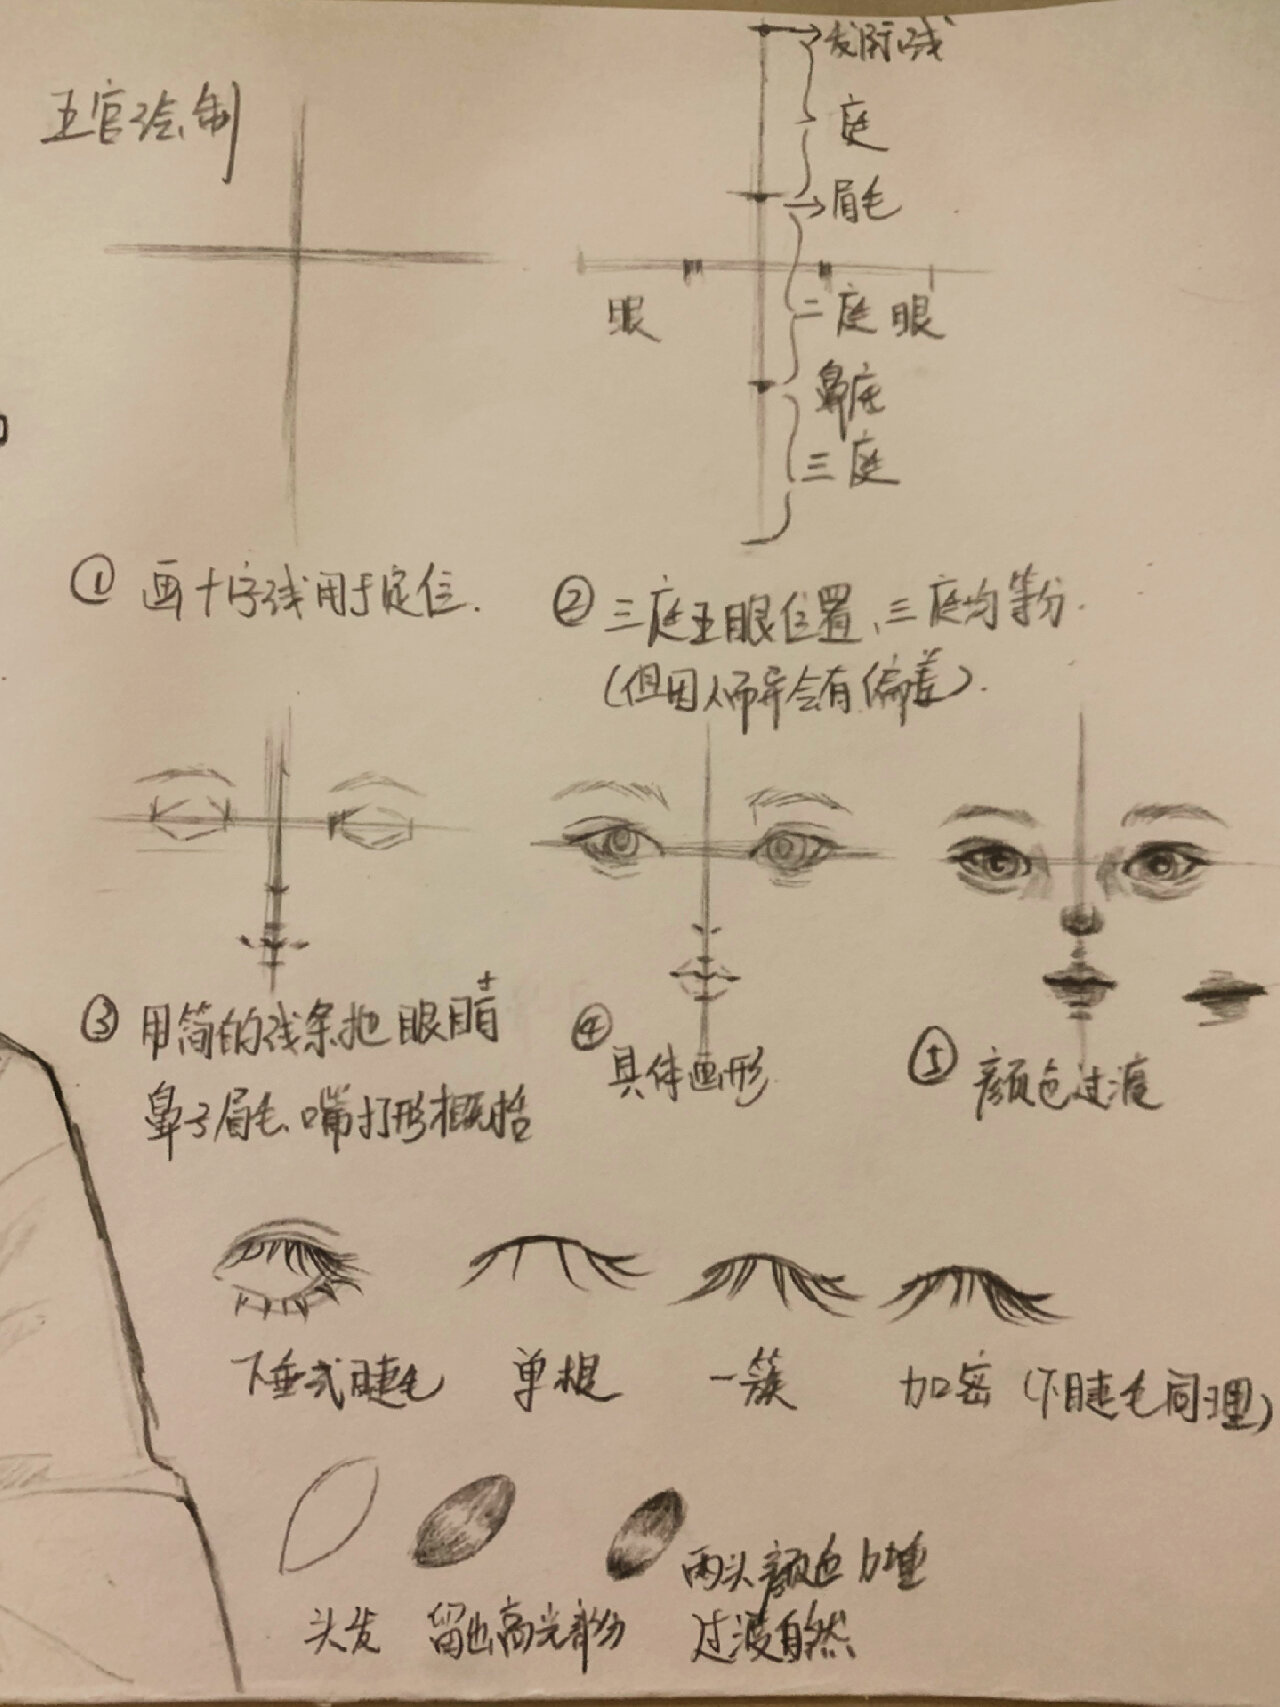 五官绘制
发际线
庭
眉毛
眼
二庭 眼
鼻底
三庭
① 画十字线用于定位.
② 三庭五眼位置、三庭均等分.
(但因人而异会有偏差).
③ 用简的线条把眼睛+
鼻子眉毛、嘴打形概括
④
具体画形
⑤ 颜色过渡
下垂式睫毛 单根 一簇 加密 (下睫毛同理)
两头颜色加重
头发 留出高光部分 过渡自然